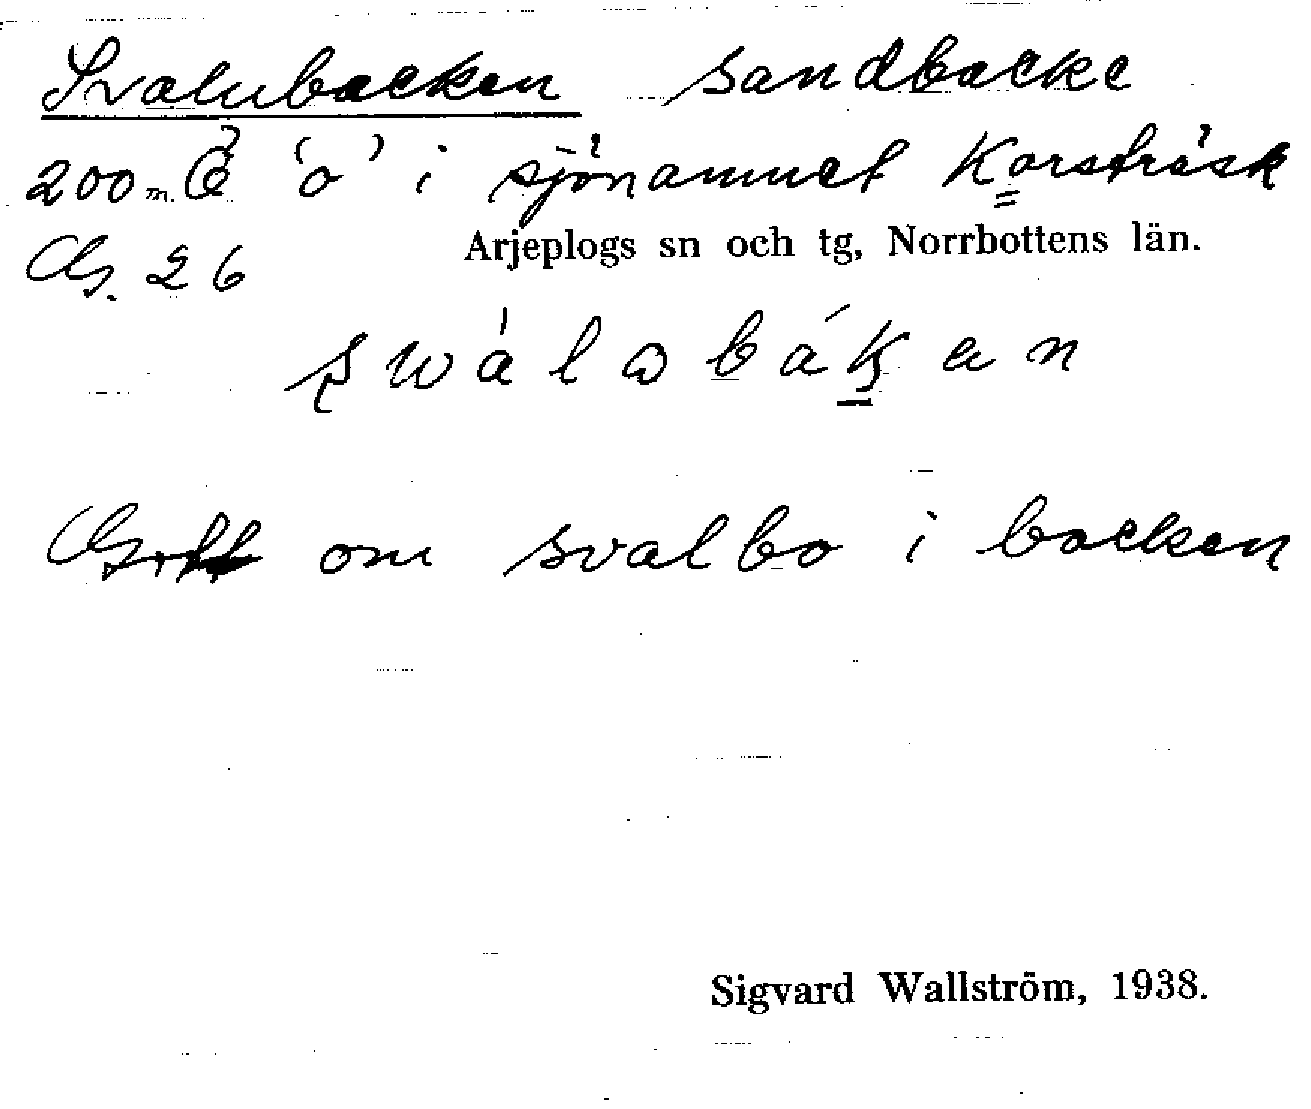 Svalubacken sandbacke
200 m. Ö 'o' i sjönamnet Korsträsk
Arjeplogs sn och tg, Norrbottens län.
26
swálabákan
om svalbo i backen
Sigvard Wallström, 1938.